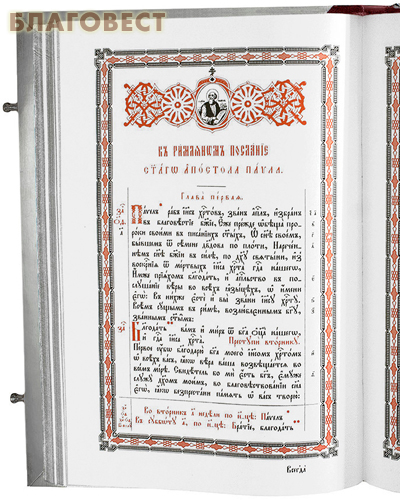 БЛАГОВЕСТ
Къ римлѧнѡмъ посланїе
ст҃а́гѡ а҆по́стола па́ѵла.
Глава̀ пе́рваѧ.
Па́ѵелъ ра́бъ і҆и҃са хр҇та̀, зва́нъ а҆п҇лъ, и҆збра́нъ
въ бл҃говѣ́стїе бж҃їе, є҆́же пре́жде ѡ҆бѣща̀ прорѡ́-
ки свои́ми въ писа́нїихъ ст҃ы́хъ, ѡ҆ сн҃ѣ свое́мъ,
бы́вшемъ ѿ сѣ́мене дв҃дова по пло́ти, нарече́н-
нѣмъ сн҃ѣ бж҃їи въ си́лѣ, по дх҃у ст҃ы́ни, и҆з̾
воскр҇нїѧ ѿ ме́ртвыхъ і҆и҃са хр҇та̀ гд҇а на́шегѡ:
И҆́мже прїѧ́хомъ благода́ть и҆ а҆п҇льство въ по-
слꙋша́нїе вѣ́ры во всѣ́хъ ꙗ҆зы́цѣхъ, ѡ҆ и҆́мени
є҆гѡ̀: Въ ни́хже є҆стѐ и҆ вы̀ зва́ни і҆и҃сꙋ хр҇тꙋ̀:
Всѣ́мъ сꙋ́щымъ въ ри́мѣ, возлю́блєннымъ бг҃ꙋ,
зва̑ннымъ ст҃ы̑мъ:
Благода́ть ва́мъ и҆ ми́ръ ѿ бг҃а ѻ҆ц҃а̀ на́шегѡ,
и҆ гд҇а і҆и҃са хр҇та̀. Престꙋпѝ вто́рникꙋ.
Пе́рвое ᲂу҆́бѡ благодарю̀ бг҃а моего̀ і҆и҃сомъ хр҇то́мъ
ѡ҆ всѣ́хъ ва́съ, ꙗ҆́кѡ вѣ́ра ва́ша возвѣща́етсѧ во
все́мъ мі́рѣ. Свидѣ́тель бо мѝ є҆́сть бг҃ъ, є҆мꙋ́же
слꙋжꙋ̀ дꙋ́хомъ мои́мъ, во бл҃говѣствова́нїи сн҃а
є҆гѡ̀, ꙗ҆́кѡ безпреста́ни па́мѧть ѡ҆ ва́съ творю̀:
Во вто́рникъ а҃ недѣ́ли по н҃-цѣ: Па́ѵелъ
Въ сꙋббѡ́тꙋ а҃, по н҃-цѣ: Бра́тїе, благода́ть
Всегда̀